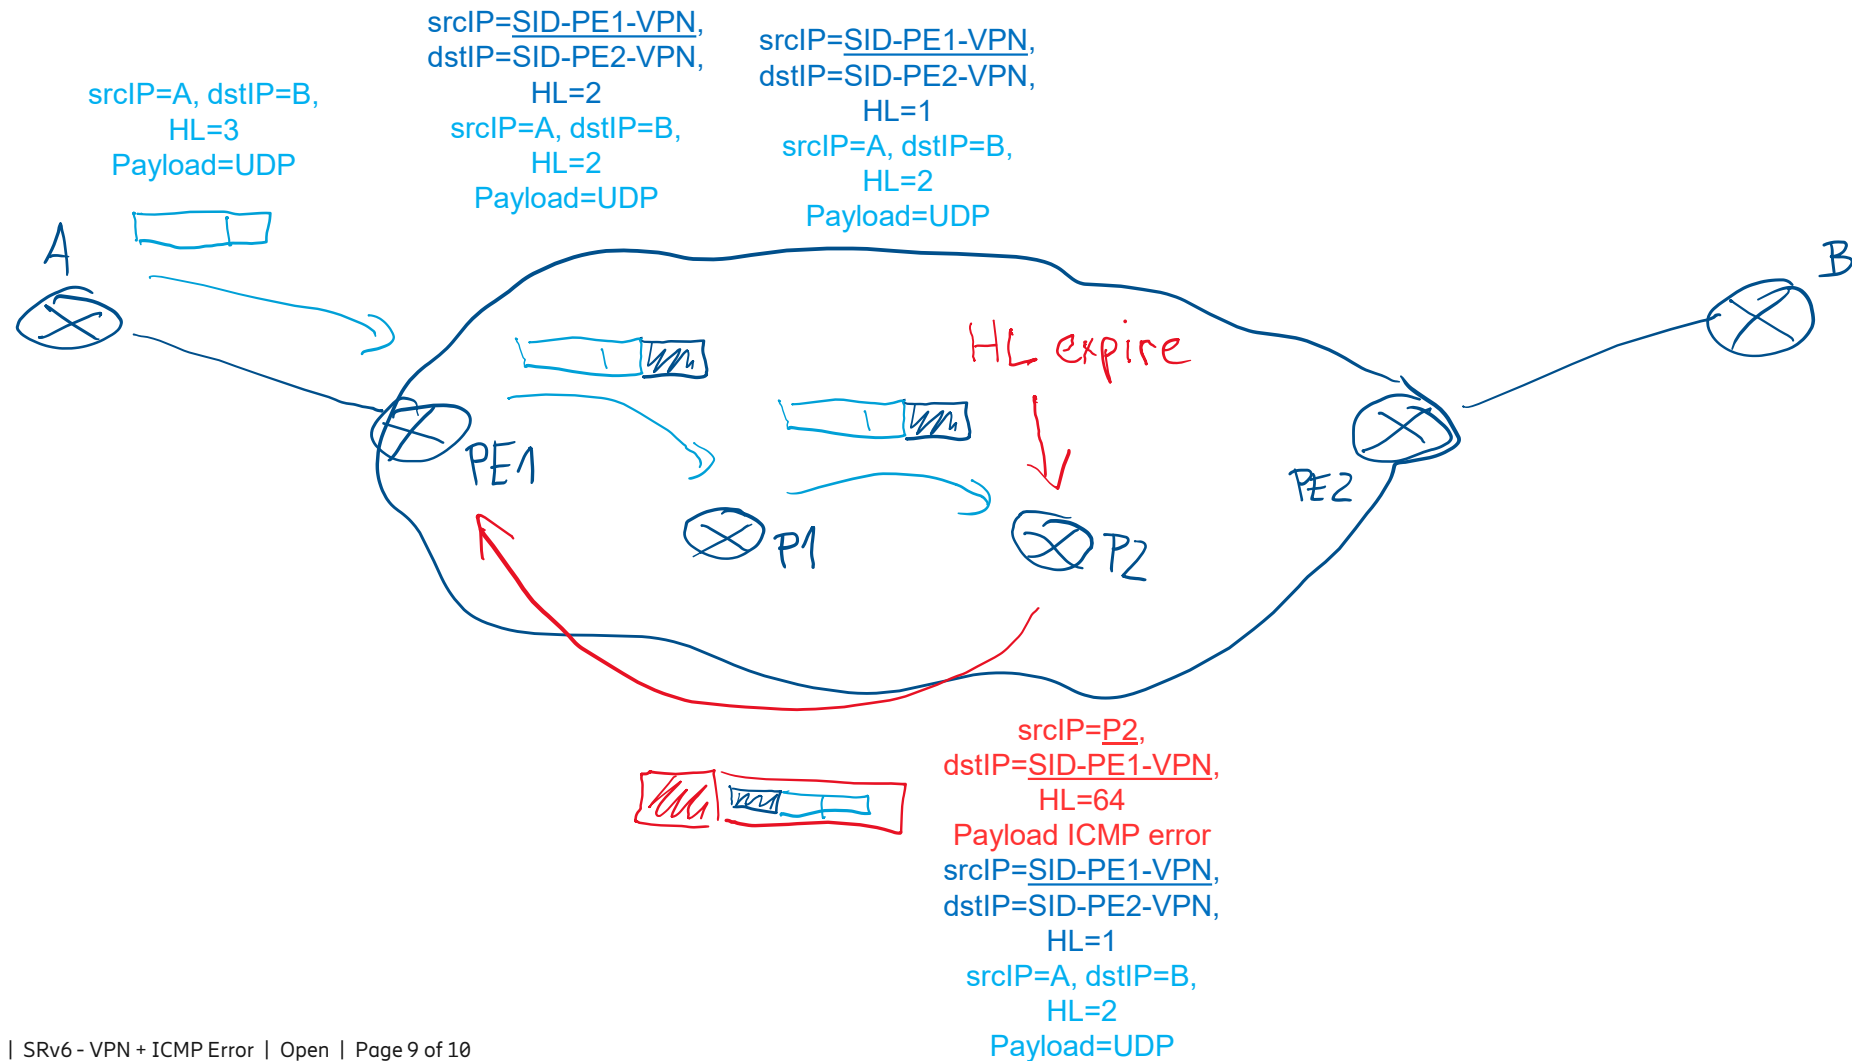 srcIP=SID-PE1-VPN,
dstIP=SID-PE2-VPN,
HL=2
srcIP=A, dstIP=B,
HL=2
Payload=UDP
srcIP=SID-PE1-VPN,
dstIP=SID-PE2-VPN,
HL=1
srcIP=A, dstIP=B,
HL=2
Payload=UDP
srcIP=A, dstIP=B,
HL=3
Payload=UDP
A
B
HL expire
PE1
PE2
P1
P2
srcIP=P2,
dstIP=SID-PE1-VPN,
HL=64
Payload ICMP error
srcIP=SID-PE1-VPN,
dstIP=SID-PE2-VPN,
HL=1
srcIP=A, dstIP=B,
HL=2
Payload=UDP
| SRv6 - VPN + ICMP Error | Open | Page 9 of 10